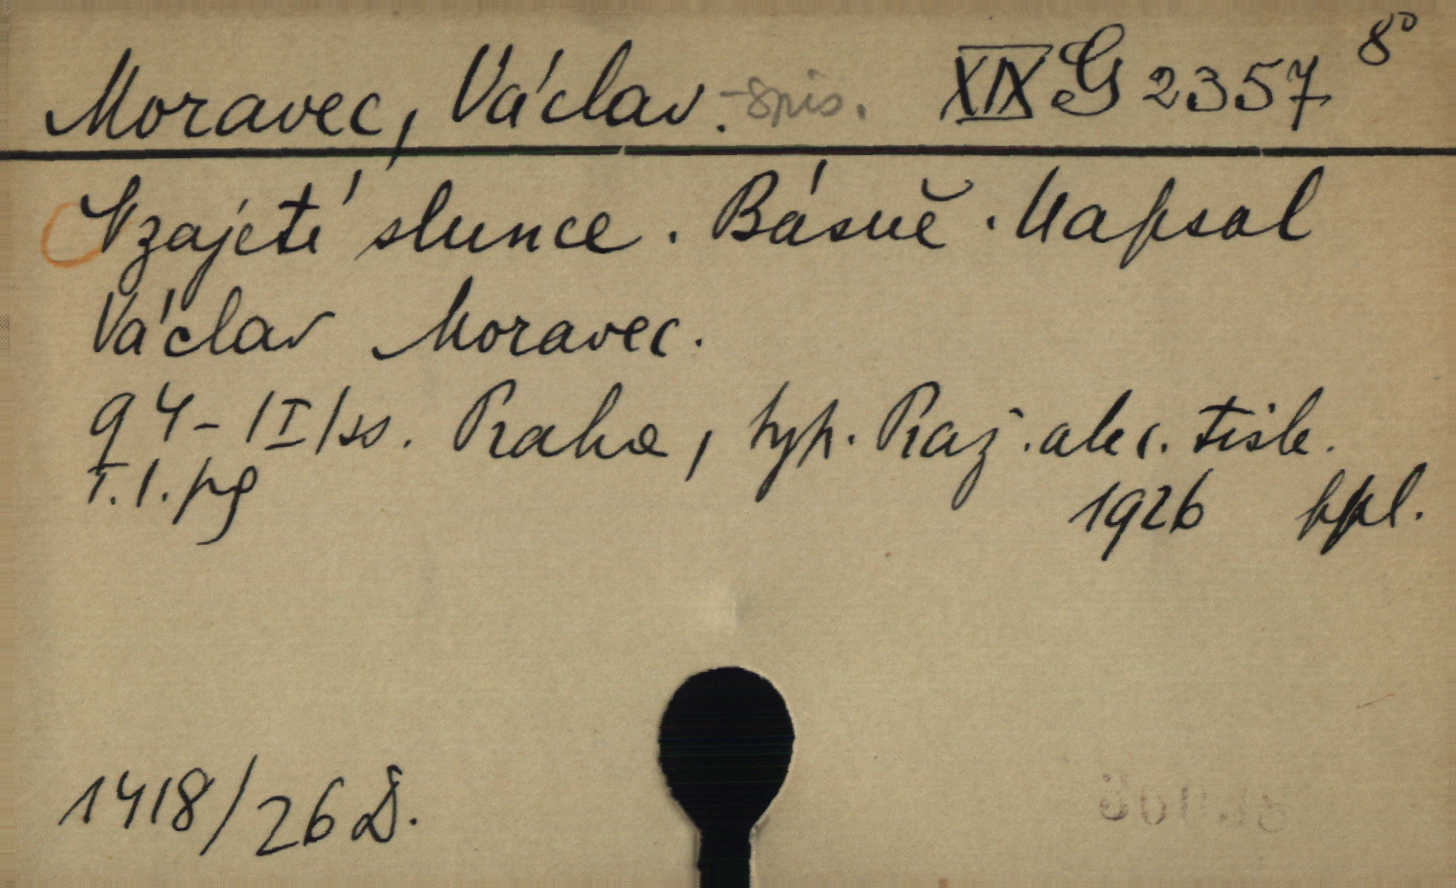 Moravec, Václav. - spis. XIX G 2357 8°
Vzajetí slunce. Básně. Napsal
Václav Moravec.
94-/I/ss. Praha, typ. Praž. akc. tisk.
1926 ppl.
1418/26 D.